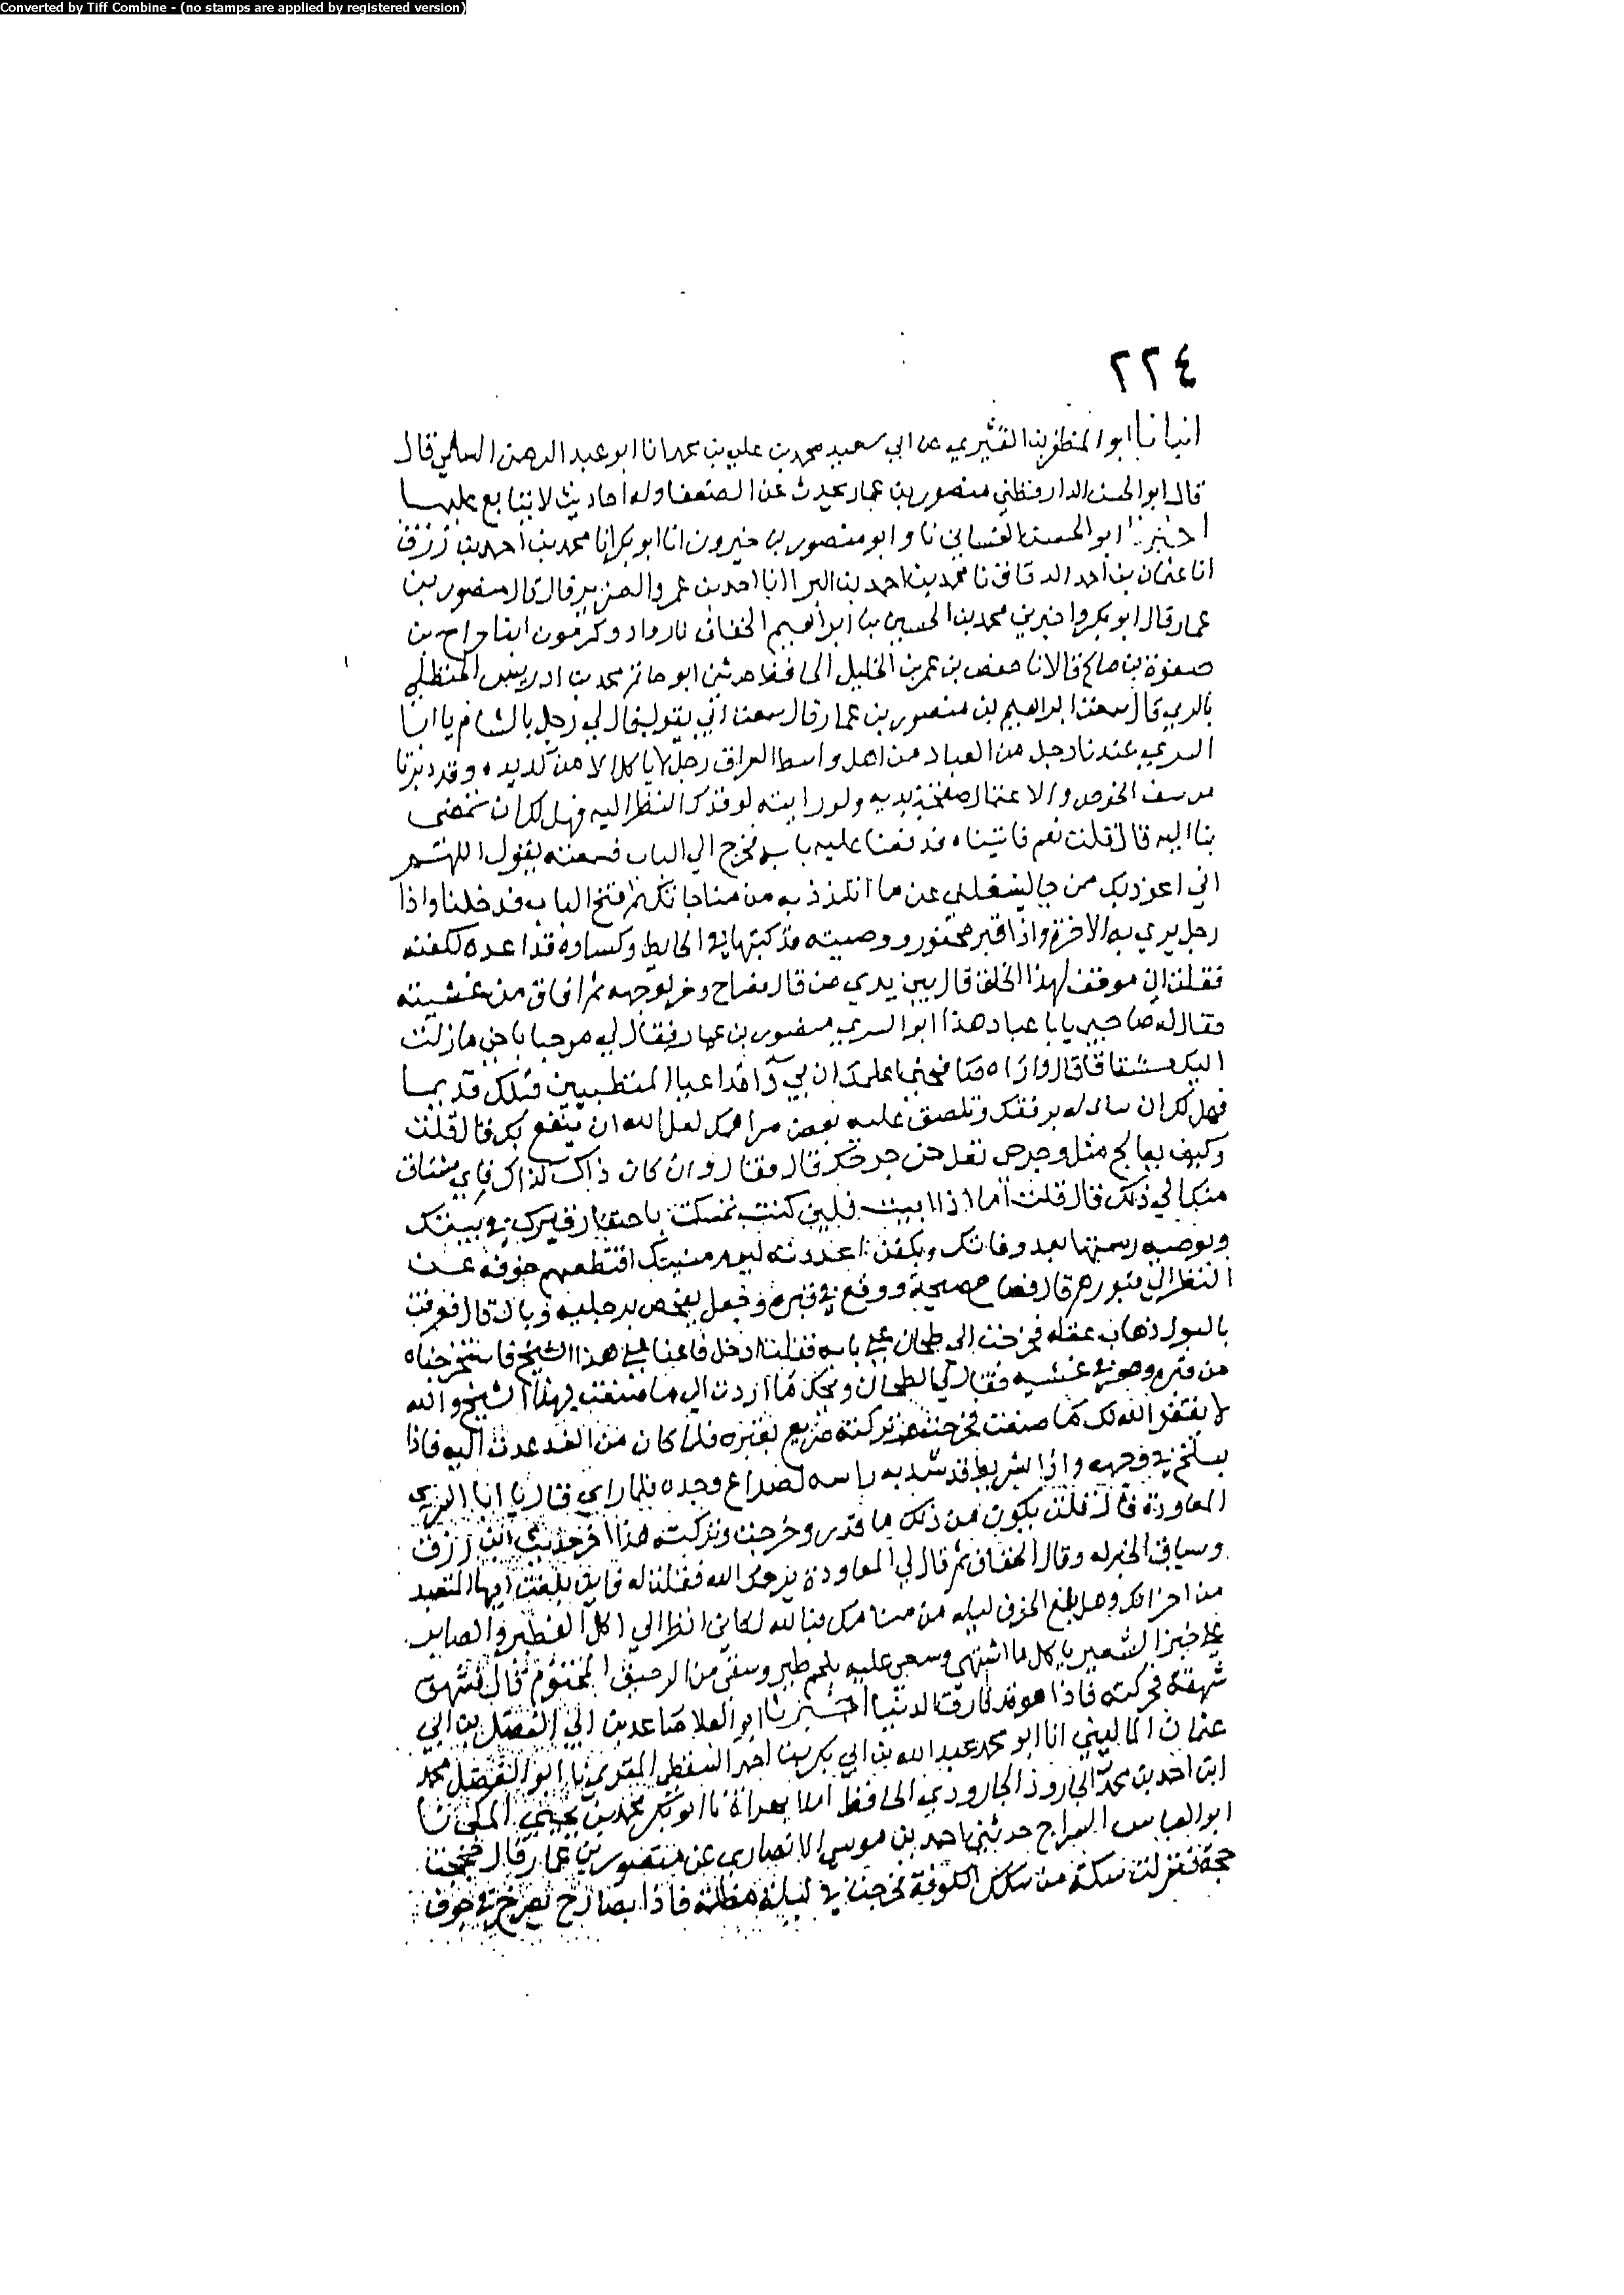 Converted by Tiff Combine - (no stamps are applied by registered version)
٢٢٤
انبانا ابو المظفر بن القشيري عن ابي سعيد محمد بن علي بن محمد انا ابو عبد الرحمن السلمي قال
قال ابو الحسن الدارقطني منصور بن عمار يحدث عن الضعفا وله احاديث لا يتابع عليها
اخبرنا ابو الحسن الغساني نا و ابو منصور بن خيرون انا ابو بكر انا محمد بن احمد بن رزق
انا عثمان بن احمد الدقاق نا محمد بن احمد بن البرا انا احمد بن عمرو قال قال منصور بن
عمار قال ابو بكر واخبرني محمد بن الحسين بن ابراهيم الخفاف
صفوة بن صالح قالا نا حفص بن عمر بن الخليل الحافظ حدثني ابو حاتم محمد بن ادريس الحنظلي
بالري قال سمعت ابراهيم بن منصور بن عمار قال سمعت ابي يقول قال لي رجل بالشام يا ابا
السري عندنا رجل من العباد من اهل واسط العراق رجل لا ياكل الا من كد يديه وقد دبرتا
من سف الخوص والاعتمال صفحة يديه ولو رايته لوقذك النظر اليه فهل لك ان تمضي
بنا اليه قال قلت نعم فاتيناه فدققنا عليه بابه فخرج الي الباب فسمعته يقول اللهم
اني اعوذ بك من جا ليشغلني عن ما اتلذذ به من مناجاتك ثم فتح الباب فدخلنا واذا
رجل يري به الاخرة واذا قبر محفور ووصيته قد كتبها في الحايط وكساوه قد اعده لكفنه
فقلت اي موقف لهذا الخلق قال بين يدي من قال فصاح وخر لوجهه ثم افاق من غشيته
فقال له صاحبي يابا عباد هذا ابو السري منصور بن عمار فقال لي مرحبا باخي ما زلت
اليك مشتاقا قال واراه صافحني اعلمك ان بي دآ قد اعيا المتطببين قبلك قديما
فهل لك ان برفقك وتلصق عليه بعض مراهمك لعل الله ان ينفع بك قال قلت
وكيف يعالج مثلي جرحي نغل من جرحك قال فقال وان كان ذاك كذاك فاني مشتاق
منك الي ذلك قال قلت اما اذا ابيت فلين كنت تمسكت باحتفار قبرك في بيتك
وبوصيه رسمتها بعد وفاتك وبكفن اعددته ليوم منيتك اقتطعهم خوفه عن
النظر الي قبورهم قال فصاح صيحة ووقع في قبره وجعل يفحص برجليه وبال قال فعرفت
بالبول ذهاب عقله فخرجت الي طحان علي بابه فقلت ادخل فاعنا علي هذا الشيخ فاستخرجناه
من قبره وهو في غشيه فقال لي الطحان ويحك ما اردت الي ما صنعت بهذا الشيخ والله
لا يغفر الله لك ما صنعت فخرجت وتركته صريع بقبره فلما كان من الغد عدت اليه فاذا
بسلخ في وجهه واذا بشريط قد شد به راسه لصداع وجده فلما راني قال يا ابا السري
المعاودة قال قلت يكون من ذلك ما قدر وخرجت وتركته هذا اخر حديث ابن رزق
وسياق الخبر له وقال الخفاف ثم قال لي المعاودة يرحمك الله فقلت له فاين بلغت ايها المتعبد
من احزانك وهل بلغ الحزن ليله من منامك فبالله لكاني انظر الي اكل الفطير والصابر
علي خبز الشعير ياكل ما اشتهي وسعي عليه بلحم طير وسقي من الرحيق المختوم قال فشهق
شهقة فحركته فاذا هو قد فارق الدنيا اخبرنا ابو العلا صاعد بن ابي الفضل بن ابي
عثمان الماليني انا ابو محمد عبد الله بن ابي بكر بن احمد السقطي المقري نا ابو الفضل محمد
ابن احمد بن محمد الجارودي الحافظ املا بهراة نا ابو بكر محمد بن يحيي المكي نا
ابو العباس السراج حدثني احمد بن موسي الانصاري عن منصور بن عمار قال حججت
حجة فنزلت سكة من سكك الكوفة فخرجت في ليلة مظلمة فاذا بصارخ يصرخ في جوف